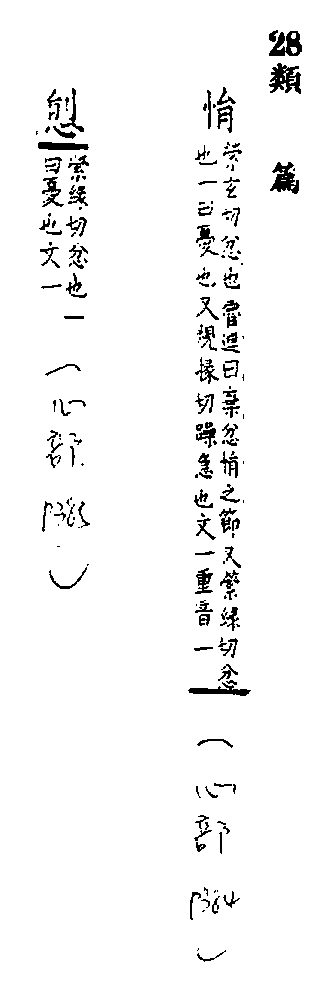 28類篇
悁
縈玄切忿也魯連曰棄忿悁之節又縈緣切忿
也一曰憂也又規掾切躁急也文一重音一
(心部 P384)
縈緣切忿也一
曰憂也文一
(心部)